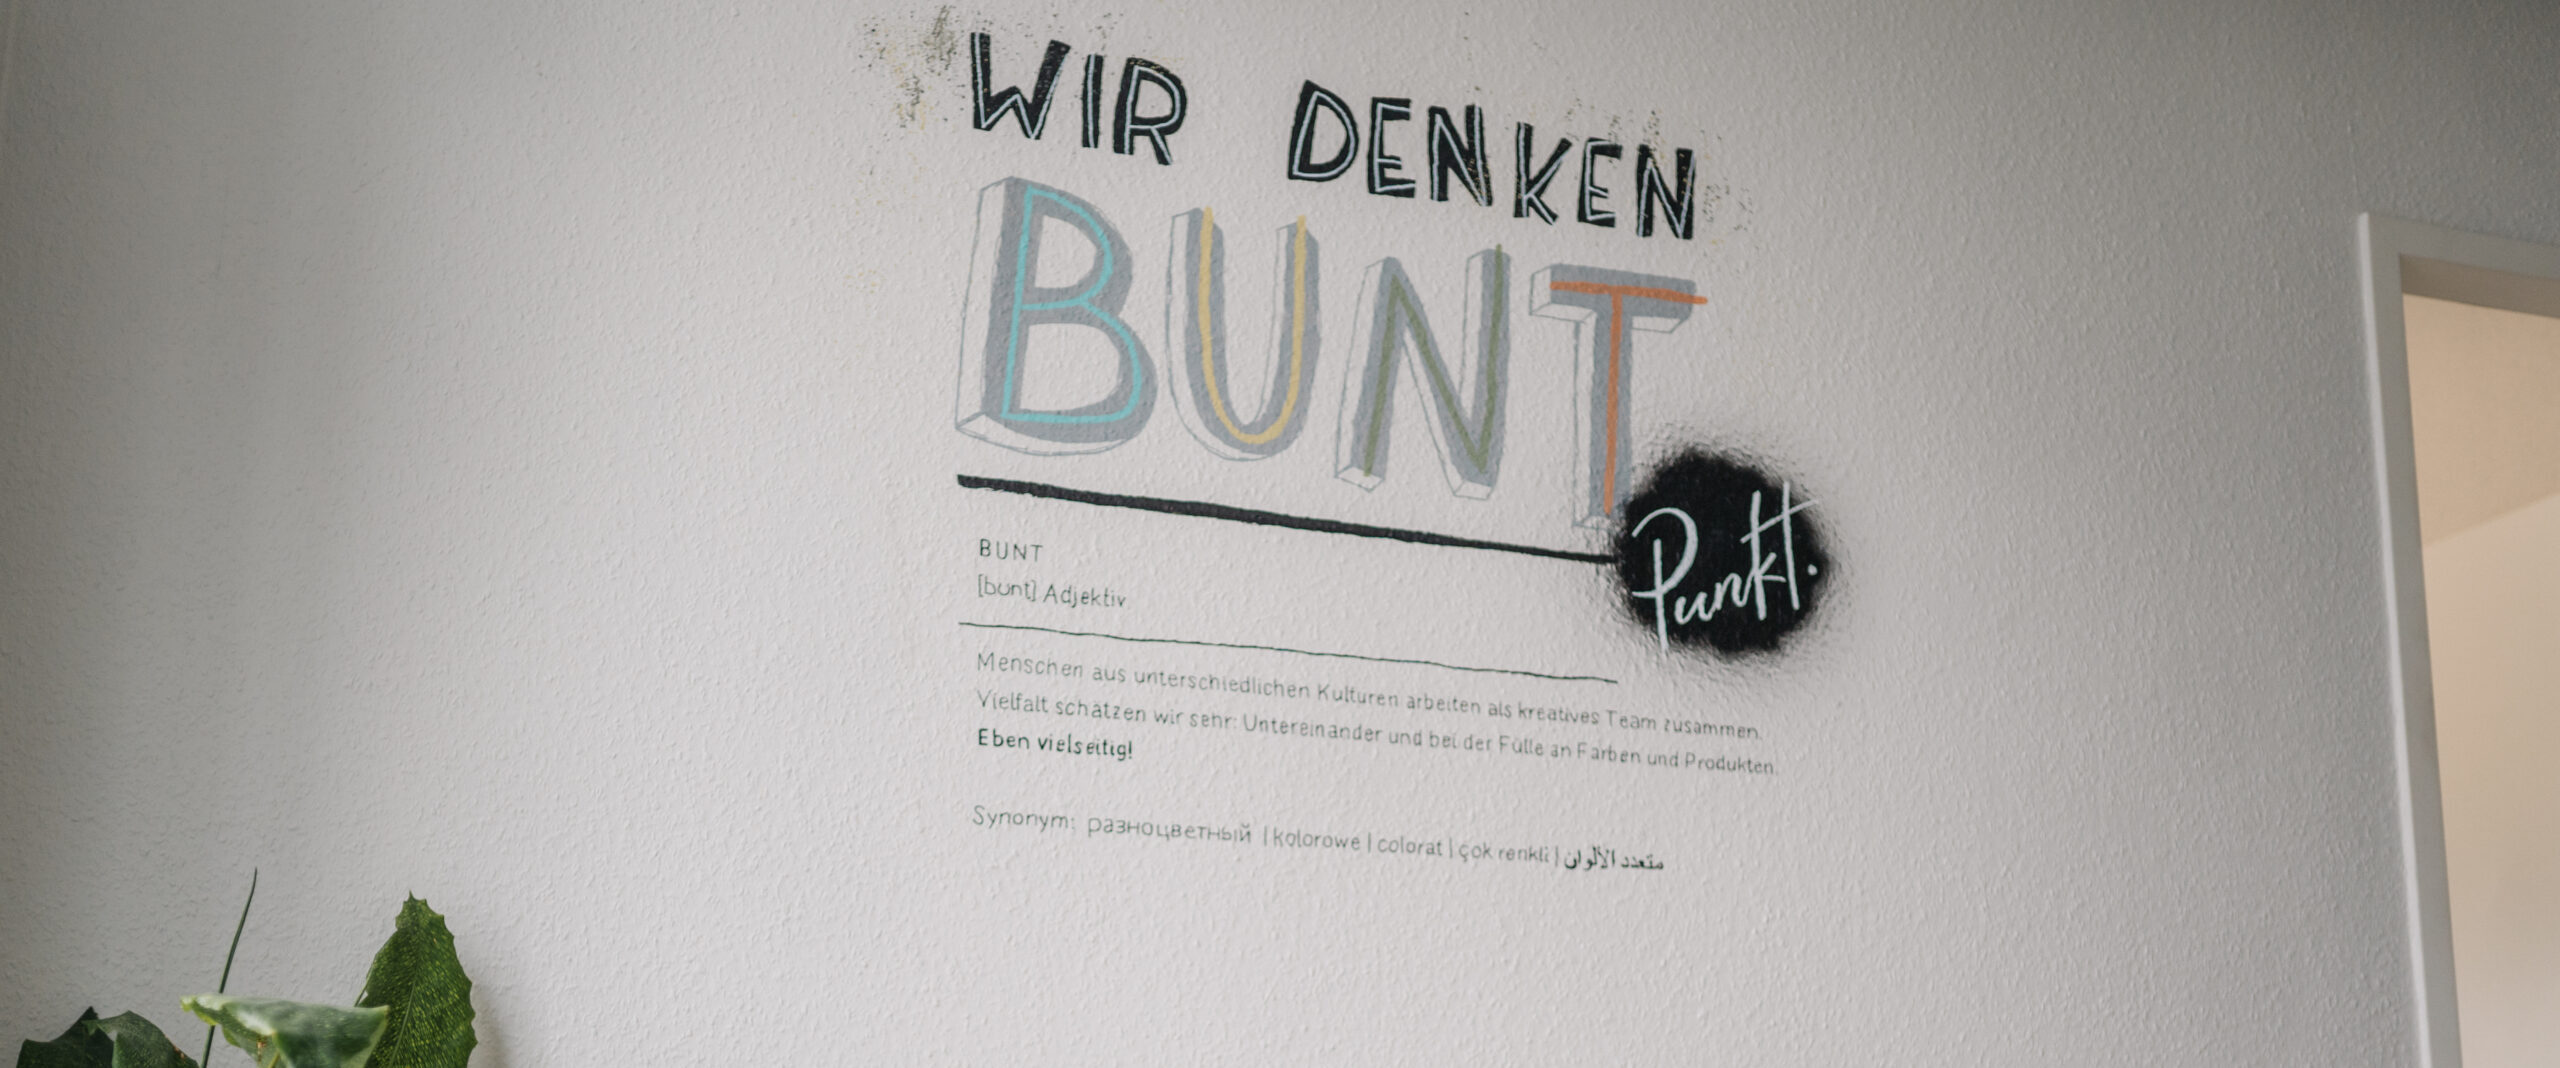 WIR DENKEN
BUNT
Punkt.
BUNT
[bunt] Adjektiv
Menschen aus unterschiedlichen Kulturen arbeiten als kreatives Team zusammen.
Vielfalt schätzen wir sehr: Untereinander und bei der Fülle an Farben und Produkten.
Eben vielseitig!
Synonym: разноцветный | kolorowe | colorat | çok renkli | متعدد الألوان